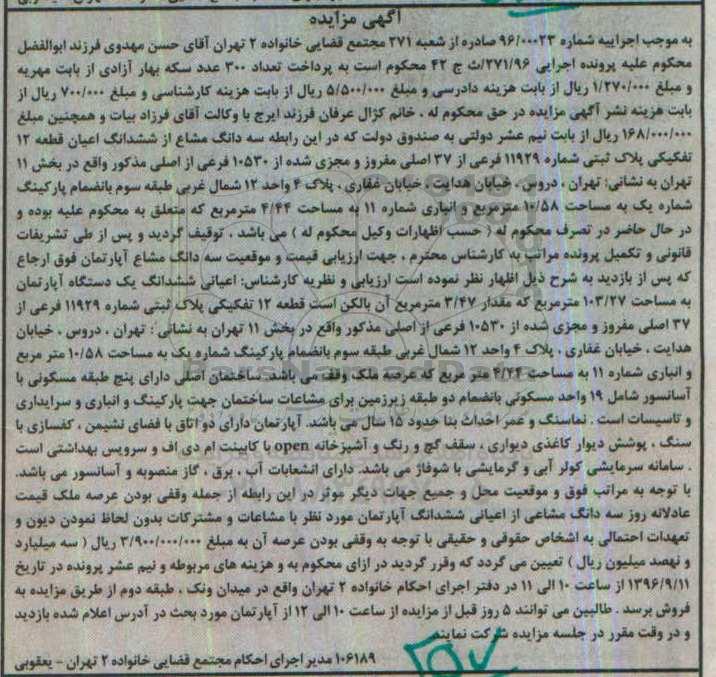 آگهی مزایده
به موجب اجراییه شماره ۹۶/۰۰۲۳ صادره از شعبه ۲۷۱ مجتمع قضایی خانواده ۲ تهران آقای حسن مهدوی فرزند ابوالفضل
محکوم علیه پرونده اجرایی ۲۷۱/۹۶/ث ج ۴۲ محکوم است به پرداخت تعداد ۳۰۰ عدد سکه بهار آزادی از بابت مهریه
و مبلغ ۱/۲۷۰/۰۰۰ ریال از بابت هزینه دادرسی و مبلغ ۵/۵۰۰/۰۰۰ ریال از بابت هزینه کارشناسی و مبلغ ۷۰۰/۰۰۰ ریال از
بابت هزینه نشر آگهی مزایده در حق محکوم له ، خانم کژال عرفان فرزند ایرج با وکالت آقای فرزاد بیات و همچنین مبلغ
۱۶۸/۰۰۰/۰۰۰ ریال از بابت نیم عشر دولتی به صندوق دولت که در این رابطه سه دانگ مشاع از ششدانگ اعیان قطعه ۱۲
تفکیکی پلاک ثبتی شماره ۱۱۹۲۹ فرعی از ۳۷ اصلی مفروز و مجزی شده از ۱۰۵۳۰ فرعی از اصلی مذکور واقع در بخش ۱۱
تهران به نشانی: تهران ، دروس ، خیابان هدایت ، خیابان غفاری ، پلاک ۴ واحد ۱۲ شمال غربی طبقه سوم بانضمام پارکینگ
شماره یک به مساحت ۱۰/۵۸ مترمربع و انباری شماره ۱۱ به مساحت ۴/۴۴ مترمربع که متعلق به محکوم علیه بوده و
در حال حاضر در تصرف محکوم له ( حسب اظهارات وکیل محکوم له ) می باشد ، توقیف گردید و پس از طی تشریفات
قانونی و تکمیل پرونده مراتب به کارشناس محترم ، جهت ارزیابی قیمت و موقعیت سه دانگ مشاع آپارتمان فوق ارجاع
که پس از بازدید به شرح ذیل اظهار نظر نموده است ارزیابی و نظریه کارشناس: اعیانی ششدانگ یک دستگاه آپارتمان
به مساحت ۱۰۳/۲۷ مترمربع که مقدار ۳/۴۷ مترمربع آن بالکن است قطعه ۱۲ تفکیکی پلاک ثبتی شماره ۱۱۹۲۹ فرعی از
۳۷ اصلی مفروز و مجزی شده از ۱۰۵۳۰ فرعی از اصلی مذکور واقع در بخش ۱۱ تهران به نشانی : تهران ، دروس ، خیابان
هدایت ، خیابان غفاری ، پلاک ۴ واحد ۱۲ شمال غربی طبقه سوم بانضمام پارکینگ شماره یک به مساحت ۱۰/۵۸ متر مربع
و انباری شماره ۱۱ به مساحت ۴/۴۴ متر مربع که عرصه ملک وقف می باشد. ساختمان اصلی دارای پنج طبقه مسکونی با
آسانسور شامل ۱۹ واحد مسکونی بانضمام دو طبقه زیرزمین برای مشاعات ساختمان جهت پارکینگ و انباری و سرایداری
و تاسیسات است . نماسنگ و عمر احداث بنا حدود ۱۵ سال می باشد. آپارتمان دارای دو اتاق با فضای نشیمن ، کفسازی با
سنگ ، پوشش دیوار کاغذی دیواری ، سقف گچ و رنگ و آشپزخانه open با کابینت ام دی اف و سرویس بهداشتی است
. سامانه سرمایشی کولر آبی و گرمایشی با شوفاژ می باشد. دارای انشعابات آب ، برق ، گاز منصوبه و آسانسور می باشد.
با توجه به مراتب فوق و موقعیت محل و جمیع جهات دیگر موثر در این رابطه از جمله وقفی بودن عرصه ملک قیمت
عادلانه روز سه دانگ مشاعی از اعیانی ششدانگ آپارتمان مورد نظر با مشاعات و مشترکات بدون لحاظ نمودن دیون و
تعهدات احتمالی به اشخاص حقوقی و حقیقی با توجه به وقفی بودن عرصه آن به مبلغ ۳/۹۰۰/۰۰۰/۰۰۰ ریال ( سه میلیارد
و نهصد میلیون ریال ) تعیین می گردد که وقرر گردید در ازای محکوم به و هزینه های مربوطه و نیم عشر پرونده در تاریخ
۱۳۹۶/۹/۱۱ از ساعت ۱۰ الی ۱۱ در دفتر اجرای احکام خانواده ۲ تهران واقع در میدان ونک ، طبقه دوم از طریق مزایده به
فروش برسد . طالبین می توانند ۵ روز قبل از مزایده از ساعت ۱۰ الی ۱۲ از آپارتمان مورد بحث در آدرس اعلام شده بازدید
و در وقت مقرر در جلسه مزایده شرکت نمایند
۱۰۶۱۸۹ مدیر اجرای احکام مجتمع قضایی خانواده ۲ تهران - یعقوبی
۵۷